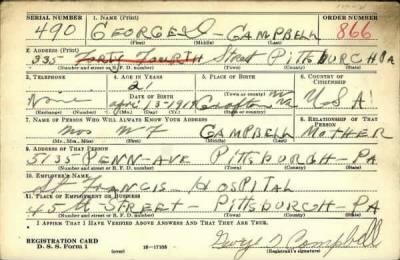 SERIAL NUMBER 1. NAME (Print) ORDER NUMBER
490 GEORGE CAMPBELL 866
(First) (Middle) (Last)
2. ADDRESS (Print)
335 FORTY FOURTH Street PITTSBURGH PA
(Number and street or R. F. D. number) (Town) (County) (State)
3. TELEPHONE 4. AGE IN YEARS 5. PLACE OF BIRTH 6. COUNTRY OF CITIZENSHIP
None 21 Grafton
DATE OF BIRTH (Town or county)
April 13-1919 W Va U S A
(Mo.) (Day) (Yr.) (State or country)
7. NAME OF PERSON WHO WILL ALWAYS KNOW YOUR ADDRESS 8. RELATIONSHIP OF THAT PERSON
MRS CAMPBELL MOTHER
(Mr., Mrs., Miss) (First) (Middle) (Last)
9. ADDRESS OF THAT PERSON
5135 PENN-AVE PITTSBURGH-PA
(Number and street or R. F. D. number) (Town) (County) (State)
10. EMPLOYER'S NAME
St FRANCIS-HOSPITAL
11. PLACE OF EMPLOYMENT OR BUSINESS
45th STREET-PITTSBURGH-PA
(Number and street or R. F. D. number) (Town) (County) (State)
I AFFIRM THAT I HAVE VERIFIED ABOVE ANSWERS AND THAT THEY ARE TRUE.
REGISTRATION CARD George Campbell
D. S. S. Form 1 (over) 16-17105 (Registrant's signature)